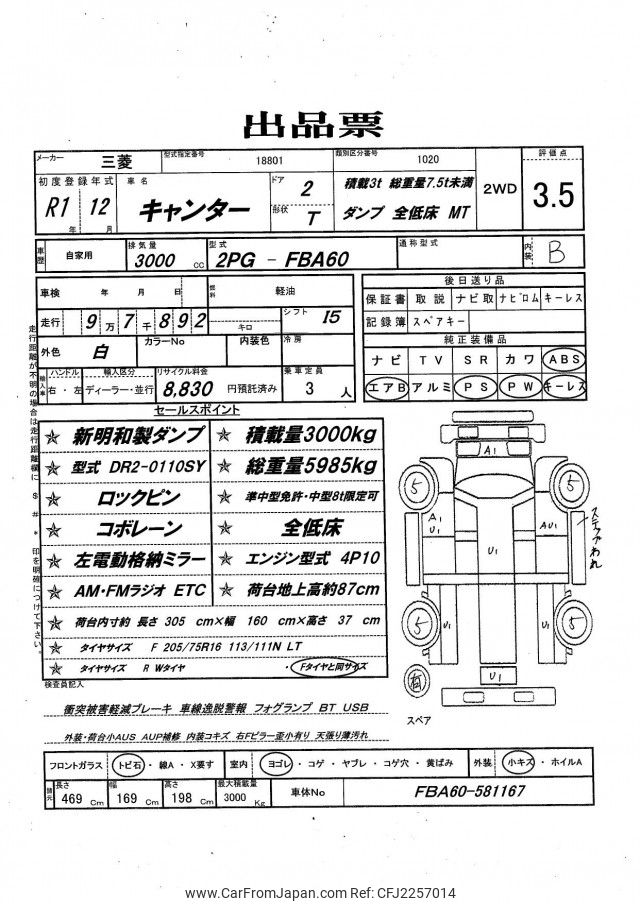 出品票
メーカー 三菱 型式指定番号 18801 類別区分番号 1020 評価点
初度登録年式 車名 ドア 2 積載3t 総重量7.5t未満 2WD 3.5
R1年 12月 キャンター 形状 T ダンプ 全低床 MT
車歴 自家用 排気量 3000 cc 型式 2PG - FBA60 通称型式 内装 B
車検 年 月 日 燃料 軽油
走行 9万7千892 キロ シフト I5
外色 白 カラーNo 内装色 冷房
輸入車 ハンドル 右・左 輸入区分 ディーラー・並行 リサイクル料金 8,830 円預託済み 乗車定員 3 人
後日送り品
保証書 取説 ナビ取 ナビロム キーレス
記録簿 スペアキー
純正装備品
ナビ TV SR カワ ABS
エアB アルミ PS PW キーレス
走行距離が不明の場合は走行距離欄に $ # * 印を明確につけて下さい。
セールスポイント
☆ 新明和製ダンプ ☆ 積載量3000kg
☆ 型式 DR2-0110SY ☆ 総重量5985kg
☆ ロックピン ☆ 準中型免許・中型8t限定可
☆ コボレーン ☆ 全低床
☆ 左電動格納ミラー ☆ エンジン型式 4P10
☆ AM・FMラジオ ETC ☆ 荷台地上高約87cm
☆ 荷台内寸約 長さ 305 cm×幅 160 cm×高さ 37 cm
☆ タイヤサイズ F 205/75R16 113/111N LT
☆ タイヤサイズ R Wタイヤ ・Fタイヤと同サイズ
A1
5
5
A1
U1
AU1
U1
ステップわれ
5
5
U1
U1
U1
有
スペア
検査員記入
衝突被害軽減ブレーキ 車線逸脱警報 フォグランプ BT USB
外装・荷台小AUS AUP補修 内装コキズ 右Fピラー歪小有り 天張り薄汚れ
フロントガラス トビ石・線A・X要す 室内 ヨゴレ・コゲ・ヤブレ・コゲ穴・黄ばみ 外装 小キズ・ホイルA
諸元 長さ 469 Cm 幅 169 Cm 高さ 198 Cm 最大積載量 3000 Kg 車体No FBA60-581167
www.CarFromJapan.com Ref: CFJ2257014